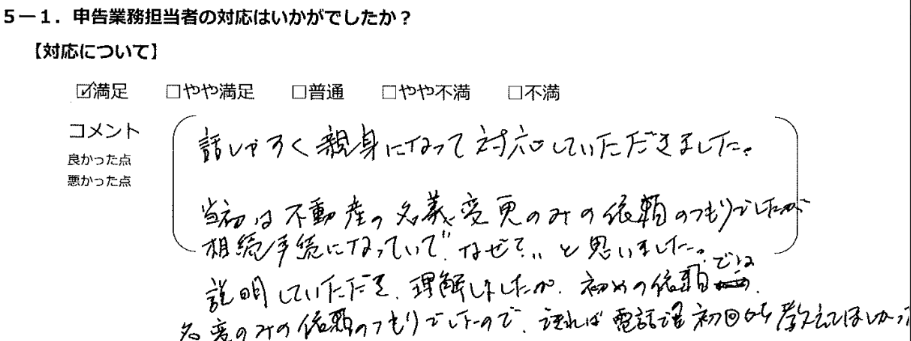 5－1．申告業務担当者の対応はいかがでしたか？
【対応について】
☑満足 □やや満足 □普通 □やや不満 □不満
コメント
良かった点
悪かった点
話しやすく親身になって対応していただきました。
当初は不動産の名義変更のみの依頼のつもりでしたが
相続手続になっていて"なぜ？"と思いました。
説明していただき、理解しましたが、初めの依頼では
名変のみの依頼のつもりでしたので、できれば電話で初回から教えてほしかっ